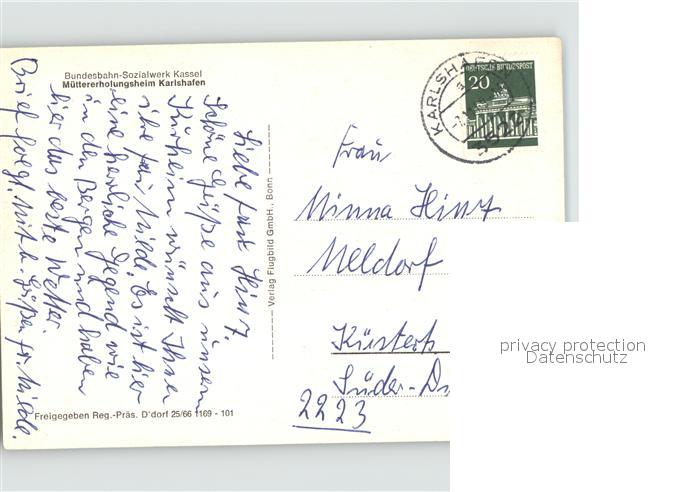 Bundesbahn-Sozialwerk Kassel
Müttererholungsheim Karlshafen
Liebe Frau Hinz,
Schöne Grüße aus unserm
Kurheim wünscht Ihnen
ihre Frau Milde. Es ist hier
eine herrliche Gegend wie
in den Bergen und haben
hier das beste Wetter.
Brief folgt. Mit h. Grüßen Fr. Milde.
Verlag Flugbild GmbH., Bonn
Freigegeben Reg.-Präs. D'dorf 25/66 1169 - 101
KARLSHAFEN
DEUTSCHE BUNDESPOST
20
Frau
Minna Hinz
Meldorf
Küsterh
Süder-
2223
privacy protection
Datenschutz